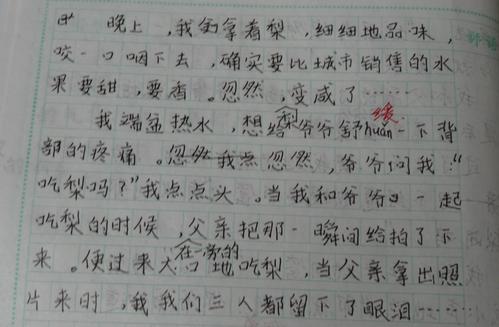 晚上，我仍拿着梨，细细地品味，
咬一口咽下去，确实要比城市销售的水
果要甜，要香。忽然，变咸了……
我端盆热水，想给爷爷舒huǎn一下背
缓
部的疼痛。忽然，爷爷问我："
吃梨吗？"我点点头。当我和爷爷一起
吃梨的时候，父亲把那一瞬间给拍了下
来。便过来大口地吃梨，当父亲拿出照
在一旁的
片来时，我们三人都留下了眼泪……